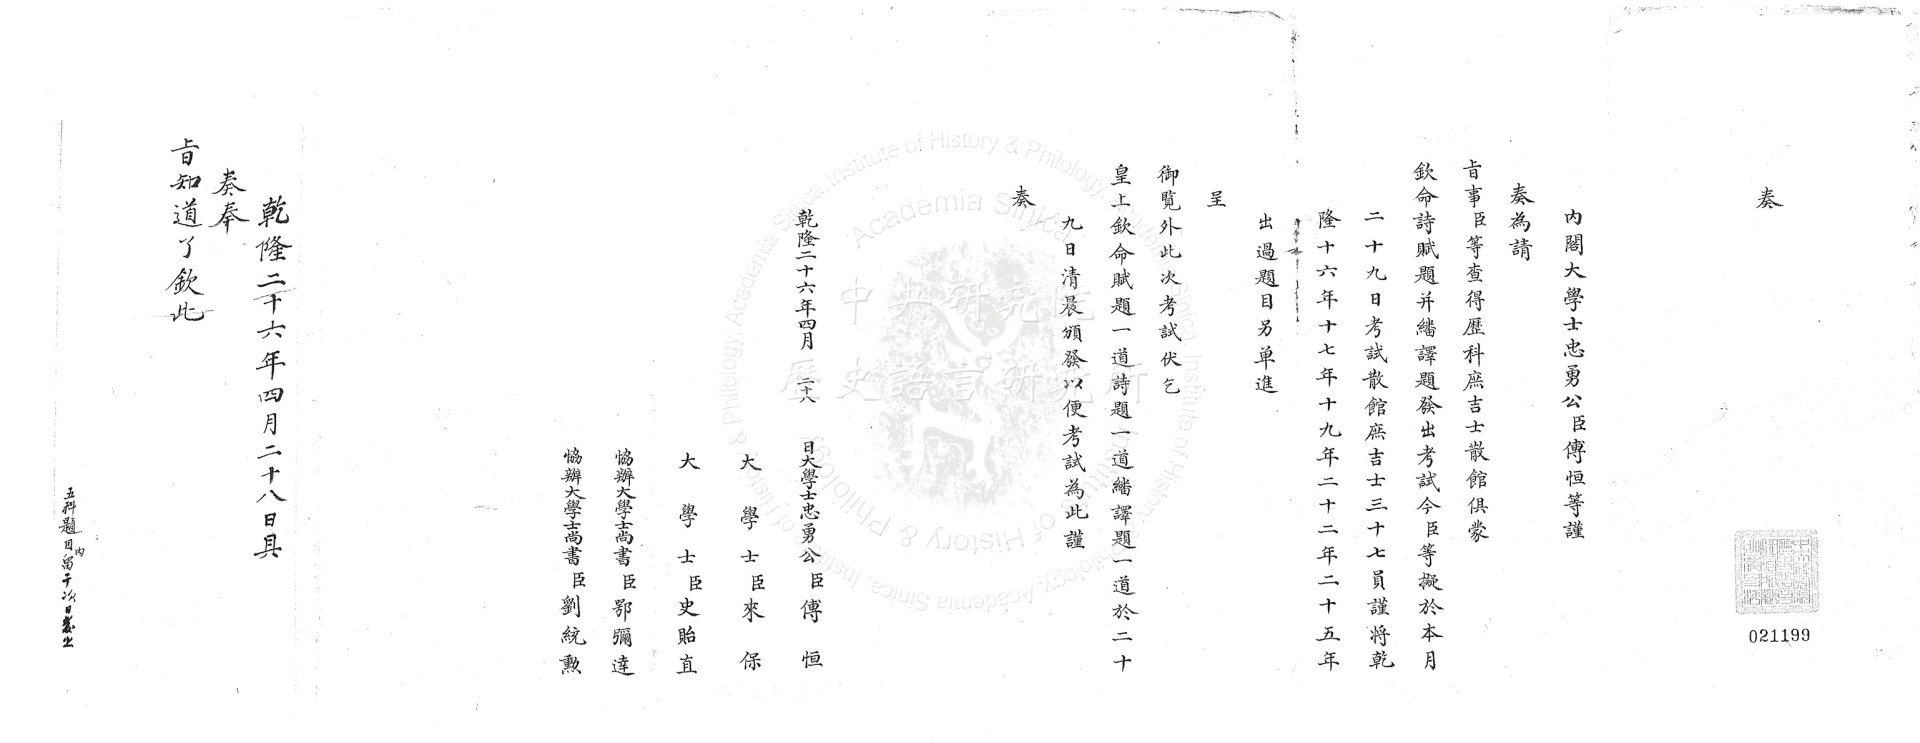 奏
021199
內閣大學士忠勇公臣傅恒等謹
奏為請
旨事臣等查得歷科庶吉士散館俱蒙
欽命詩賦題并繙譯題發出考試今臣等擬於本月
二十九日考試散館庶吉士三十七員謹將乾
隆十六年十七年十九年二十二年二十五年
出過題目另單進
呈
御覧外此次考試伏乞
皇上欽命賦題一道詩題一道繙譯題一道於二十
九日清晨頒發以便考試為此謹
奏
乾隆二十六年四月二十八日大學士忠勇公臣傅恒
大學士臣來保
大學士臣史貽直
協辦大學士尚書臣鄂彌達
協辦大學士尚書臣劉統勳
乾隆二十六年四月二十八日具
奏奉
旨知道了欽此
五科題目留于次日發出
內
中央研究院
歷史語言研究所
Academia Sinica
Institute of History & Philology, Academia Sinica